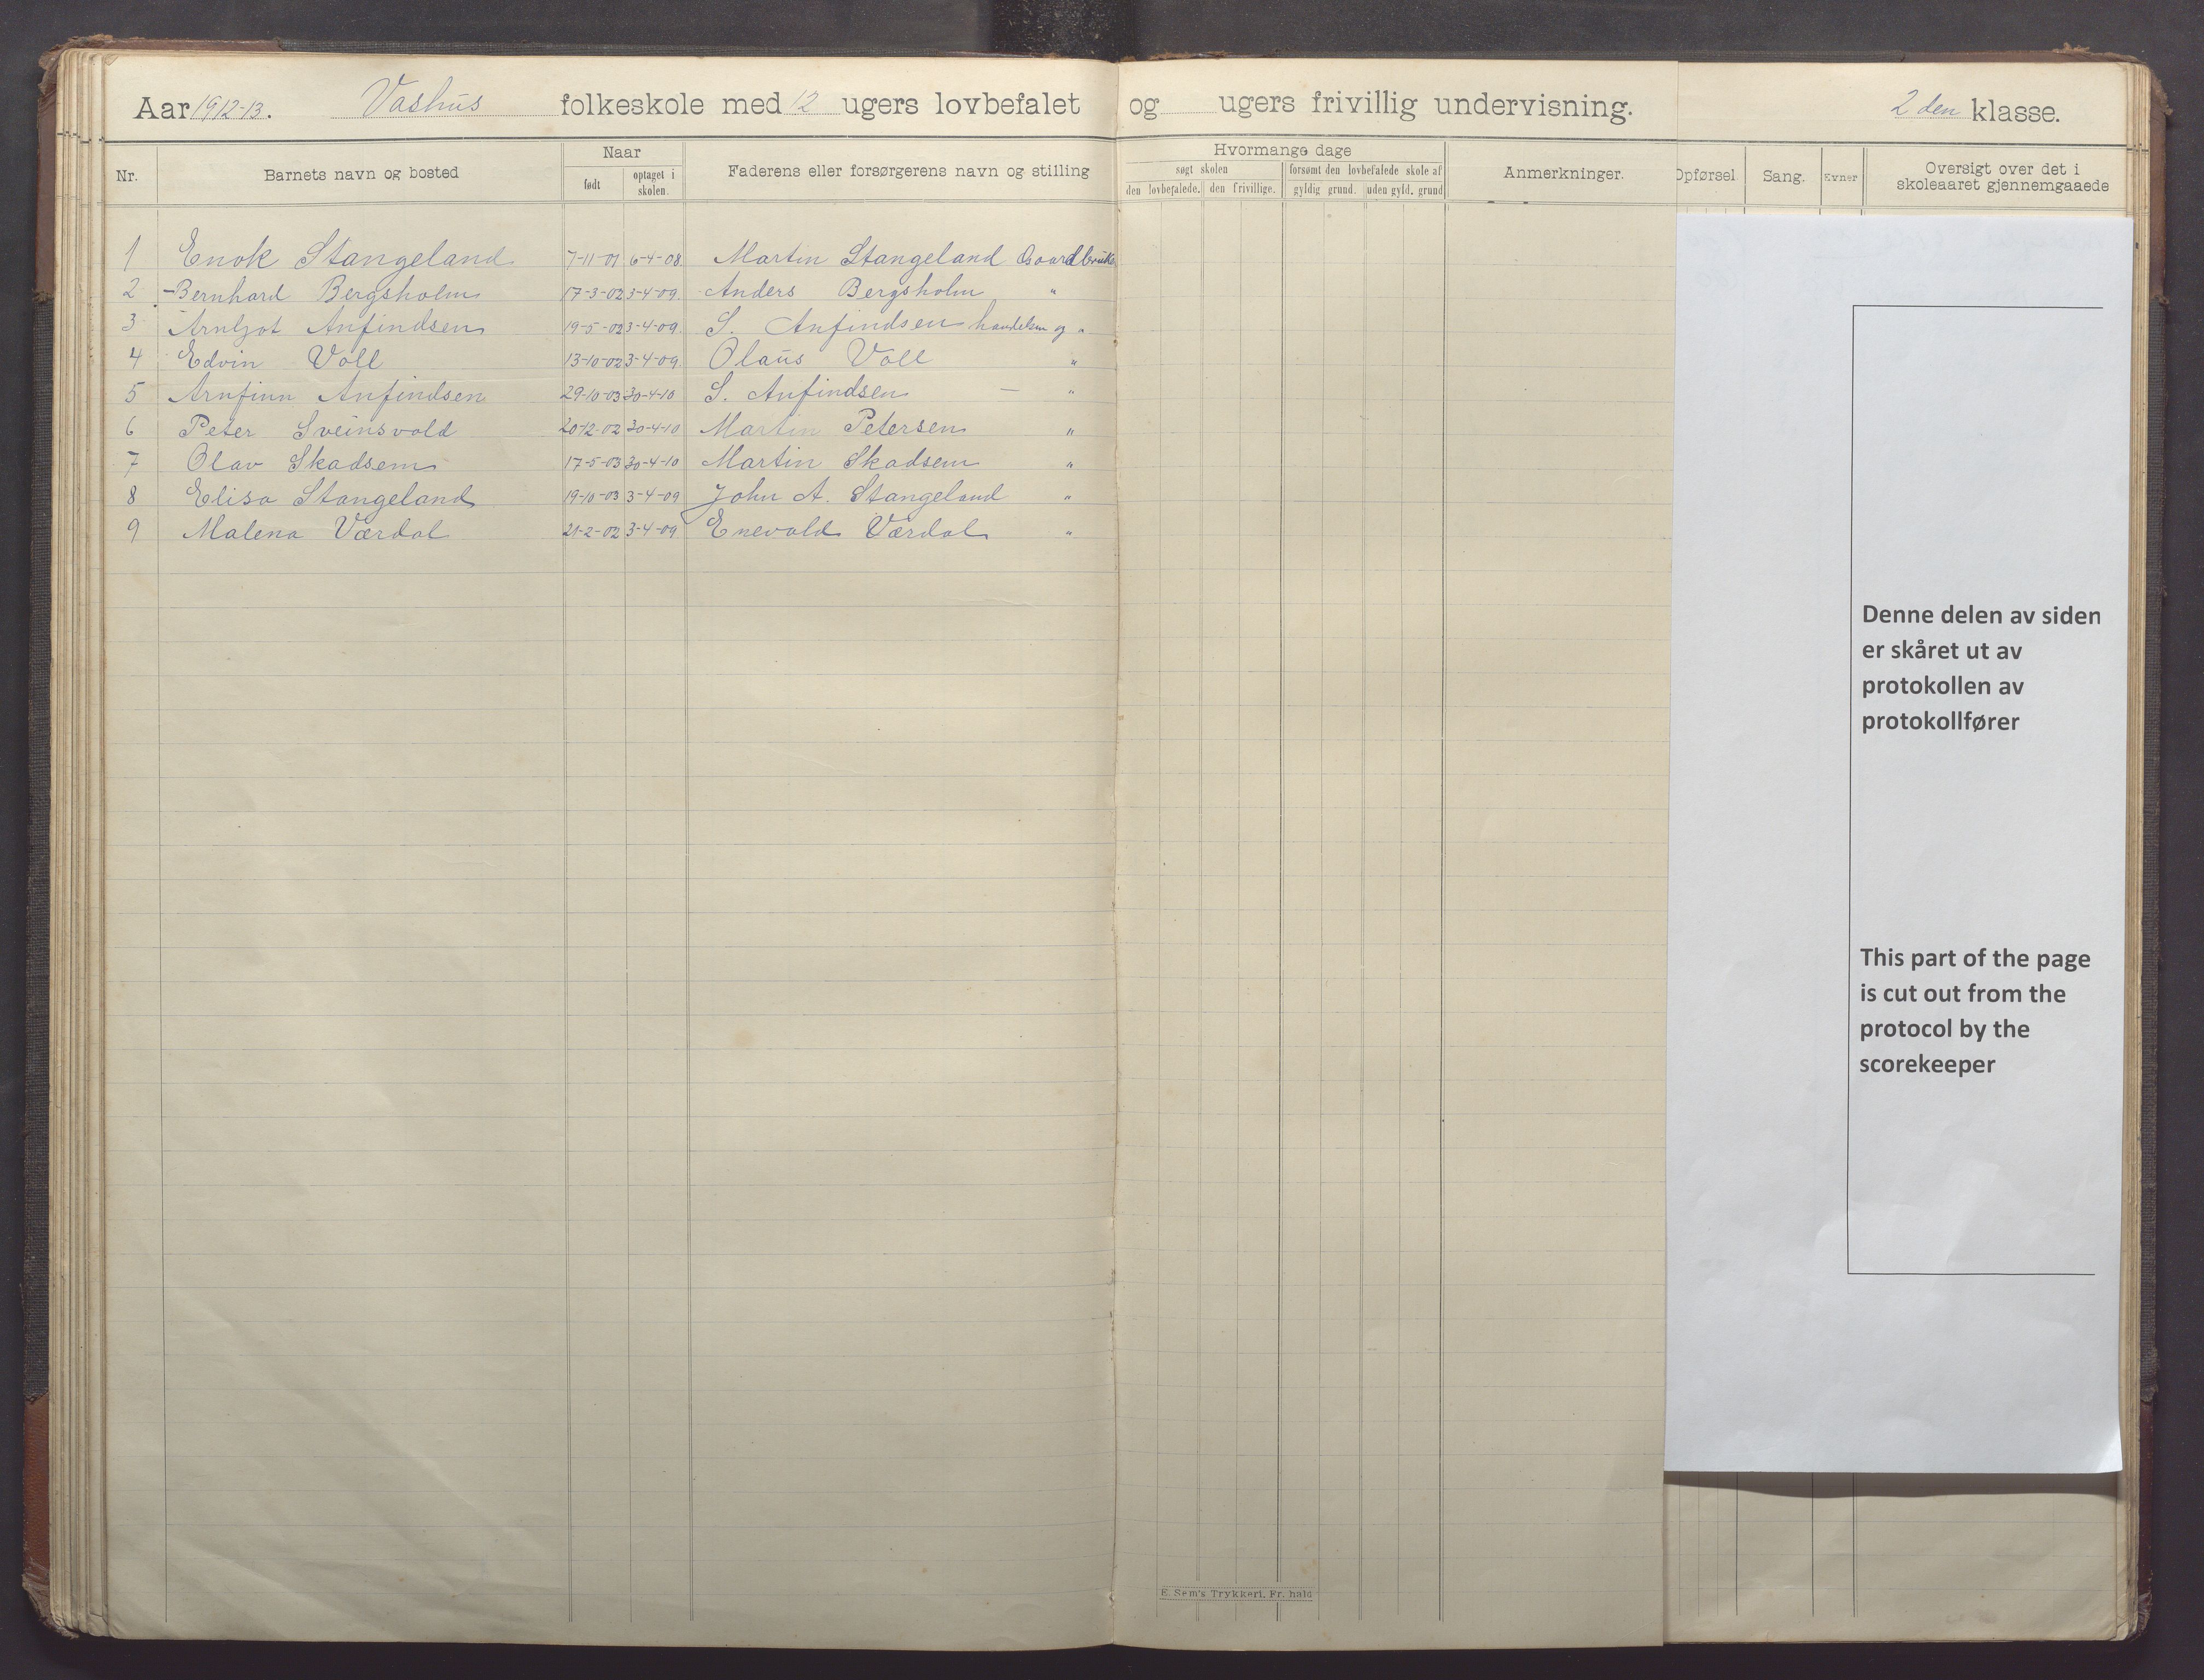 Aar 1912-13. Vashus folkeskole med 12 ugers lovbefalet og ugers frivillig undervisning. 2 den klasse.
Nr. Barnets navn og bosted Naar født optaget i skolen. Faderens eller forsørgerens navn og stilling Hvormange dage søgt skolen den lovbefalede. den frivillige. forsømt den lovbefalede skole af gyldig grund. uden gyld. grund Anmerkninger. Opførsel Sang. Evner Oversigt over det i skoleaaret gjennemgaaede
1 Enok Stangeland 7-11-01 6-4-08 Martin Stangeland Gaardbruker
2 - Bernhard Bergsholm 17-3-02 3-4-09. Anders Bergsholm "
3 Arnljot Anfindsen 19-5-02 3-4-09. S. Anfindsen handelsm og "
4 Edvin Voll 13-10-02 3-4-09. Olaus Voll "
5 Arnfinn Anfindsen 29-10-03 30-4-10 S. Anfindsen — "
6 Peter Sveinsvold 20-12-02 30-4-10 Martin Petersen "
7 Olav Skadsem 17-5-03 30-4-10 Martin Skadsem "
8 Elisa Stangeland 19-10-03 3-4-09 John A. Stangeland "
9 Malena Værdal 21-2-02 3-4-09 Enevald Værdal "
Denne delen av siden
er skåret ut av
protokollen av
protokollfører
This part of the page
is cut out from the
protocol by the
scorekeeper
E. Sem's Trykkeri, Fr. hald